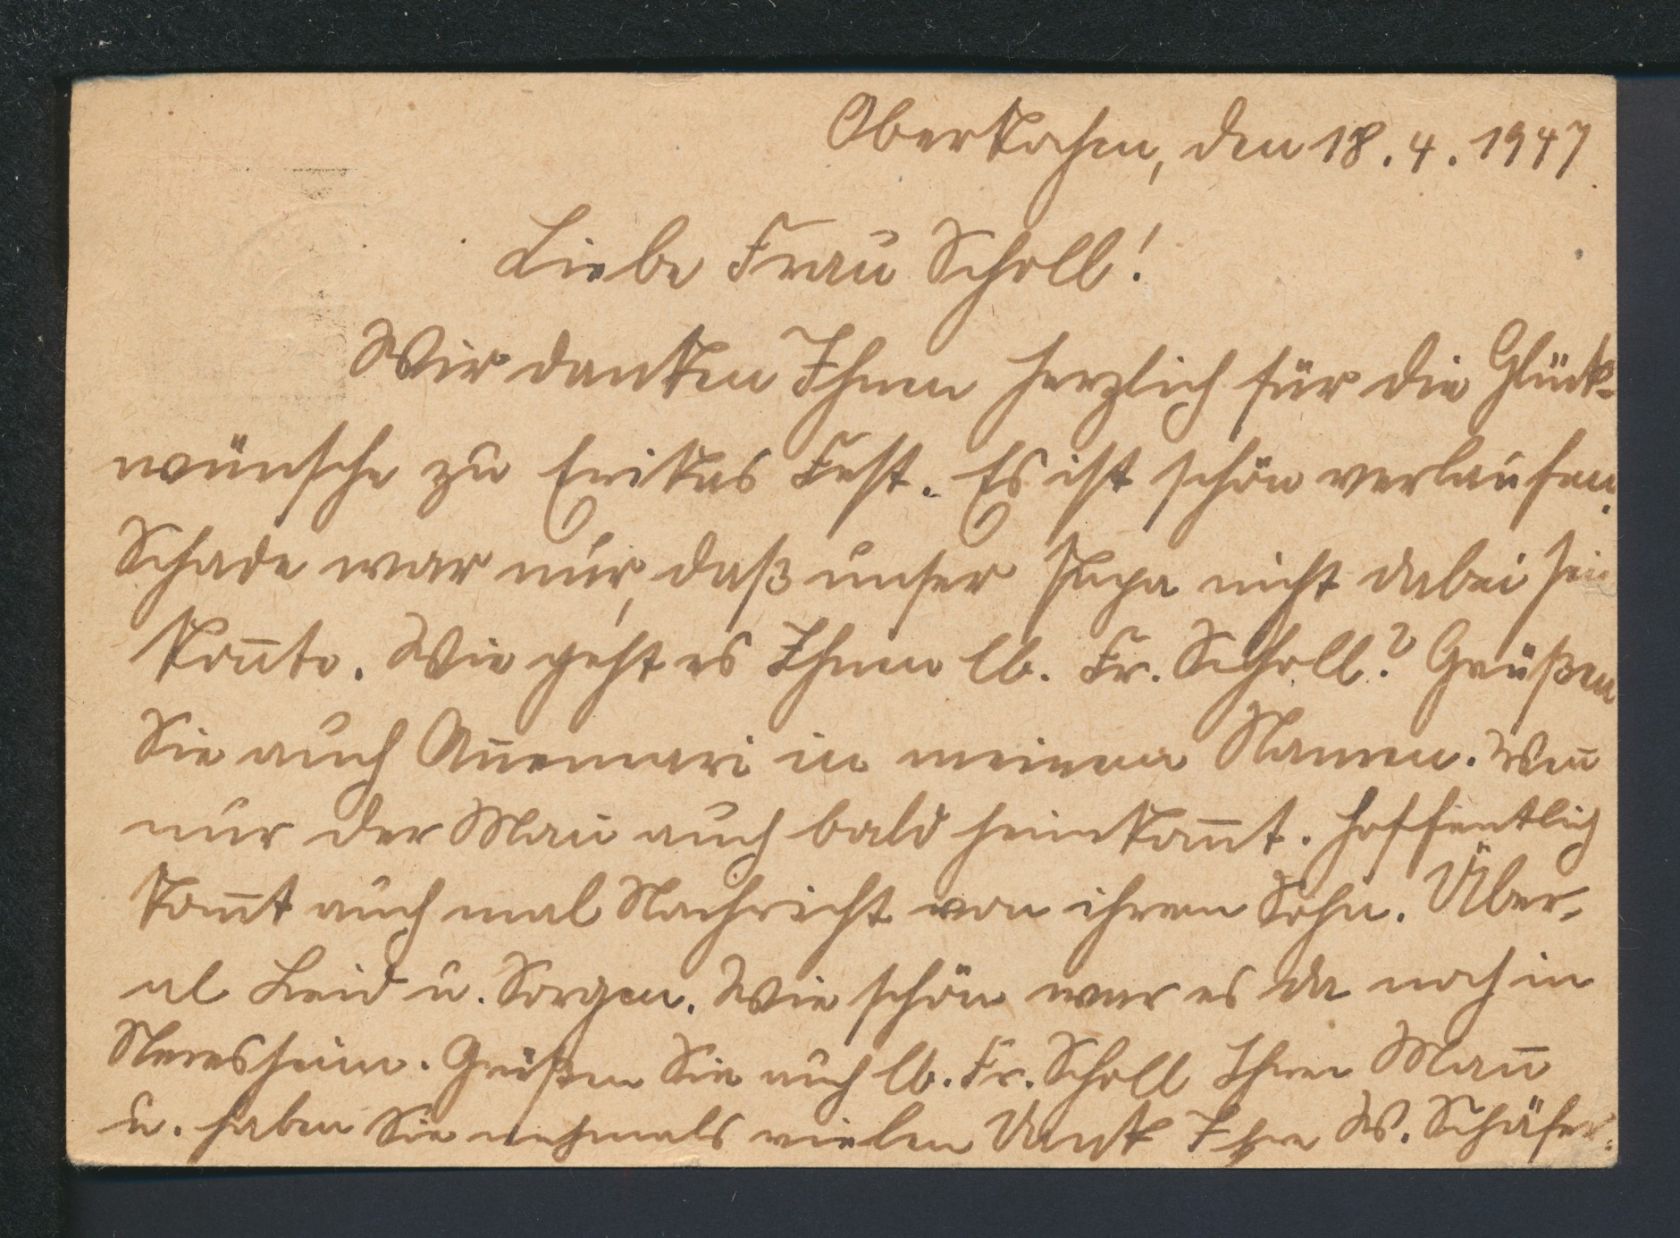 Oberkochen, den 18.4.1947
Liebe Frau Scholl!
Wir danken Ihnen herzlich für die Glück-
wünsche zu Erikas Fest. Es ist schön verlaufen.
Schade war nur, daß unser Papa nicht dabei sein
kon̄te. Wie geht es Ihnen lb. Fr. Scholl? Grüßen
Sie auch An̄emarie in meinem Namen. Wen̄
nur der Man̄ auch bald heimkom̄t. Hoffentlich
kom̄t auch mal Nachricht von ihrem Sohn. Über-
al Leid u. Sorgen. Wie schön war es da noch in
Neresheim. Grüßen Sie auch lb. Fr. Scholl Ihren Man̄
u. haben Sie nochmals vielen Dank Ihre W. Schäfer.